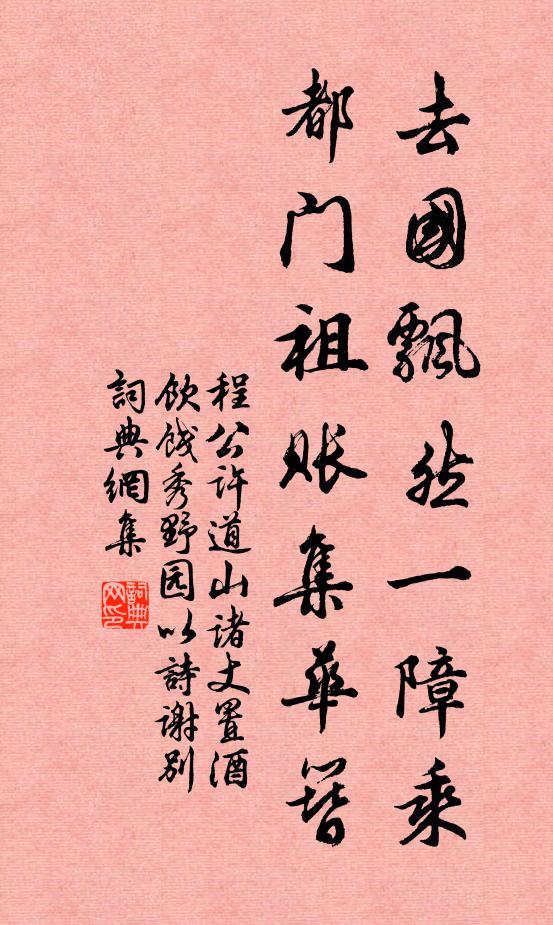 去國飄然一障乘
都门祖账集華簪
程公许道山诸丈置酒
饮饯秀野园以詩谢别
詞典網集
詞典网印